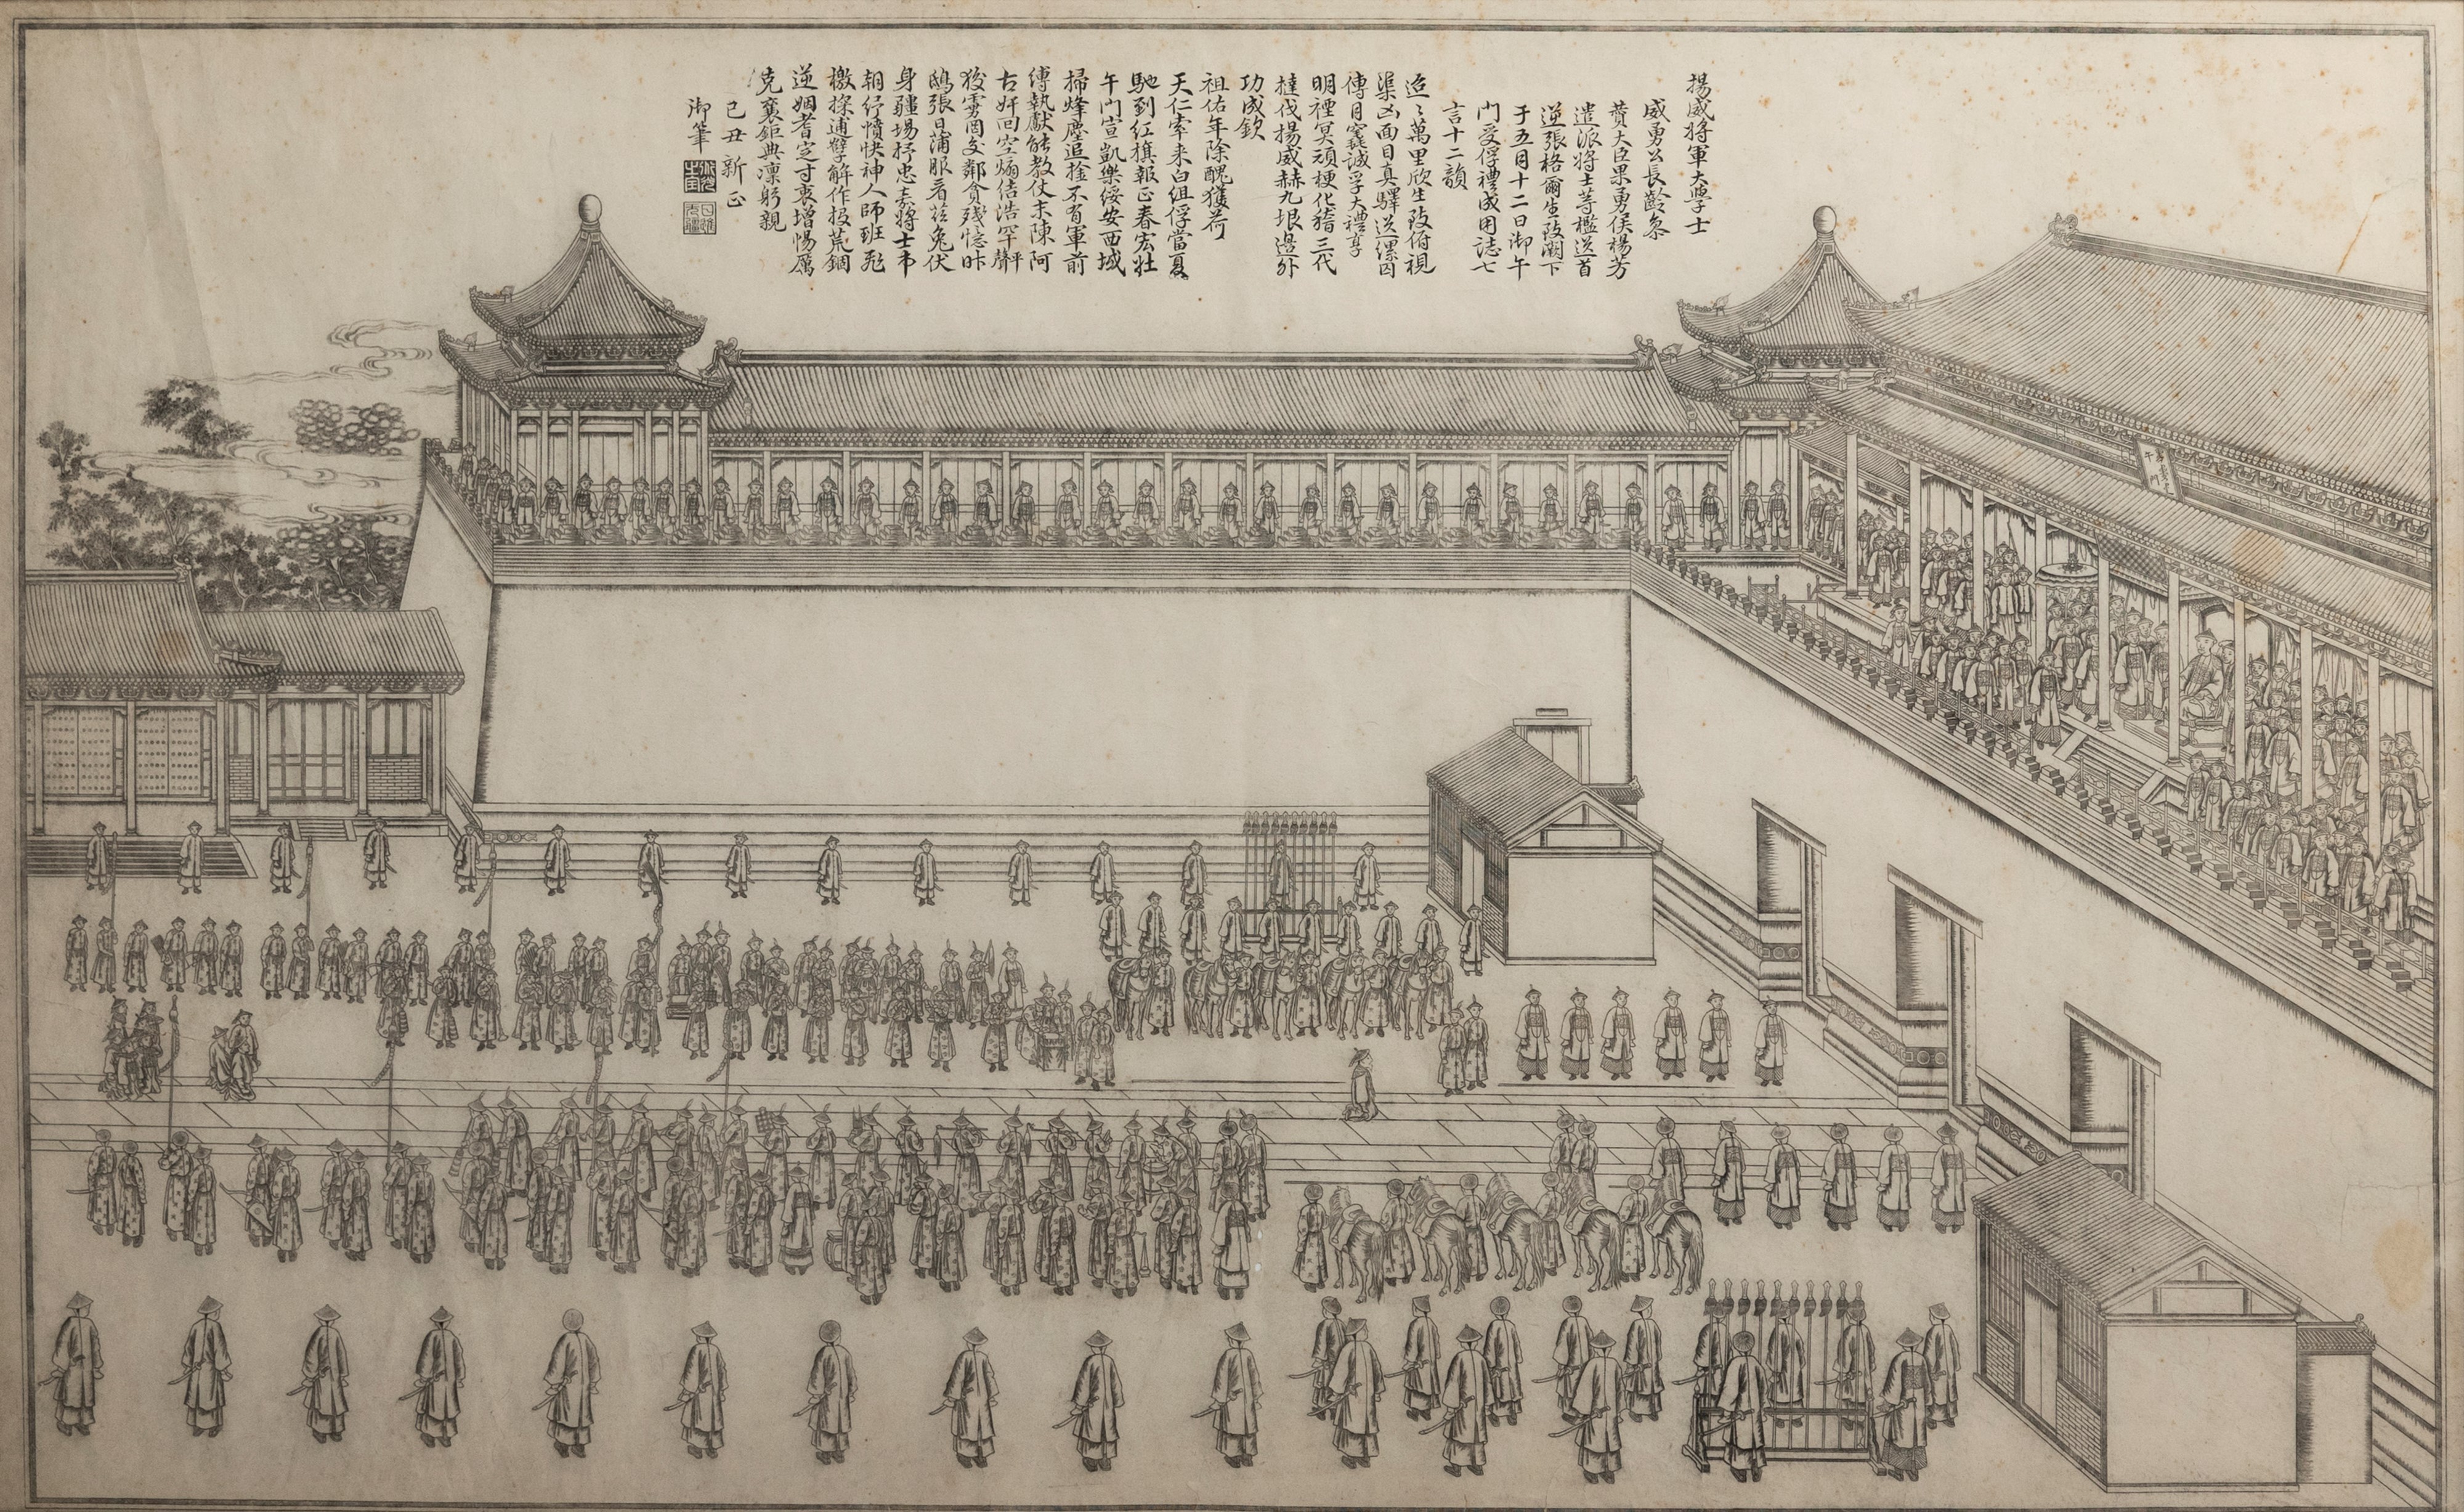 揚威將軍大學士
威勇公長齡參
贊大臣果勇侯楊芳
遣派將士等檻送首
逆張格爾生致闕下
于五月十二日御午
門受俘禮成用誌七
言十二韻
迢〻萬里欣生致俯視
渠凶面目真驛送縲囚
傳目寔誠孚大禮享
明禋冥頑梗化稽三代
撻伐揚威赫九垠邊外
功成欽
祖佑年除醜獲荷
天仁牽来白組俘當夏
馳到紅旗報正春宏壯
午門宣凱樂綏安西域
掃烽塵追擒不有軍前
縛執獻能教仗末陳阿
古奸回空煽佶浩罕聲
援雲罔交鄰貪殘憶昨
鴟張日蒲服看茲兔伏
身疆場抒忠嘉將士市
朝紓憤快神人師班飛
檄探逋孽解作投荒錮
逆姻耆定寸衷增惕厲
克襄鉅典凜躬親
己丑新正
御筆
午門